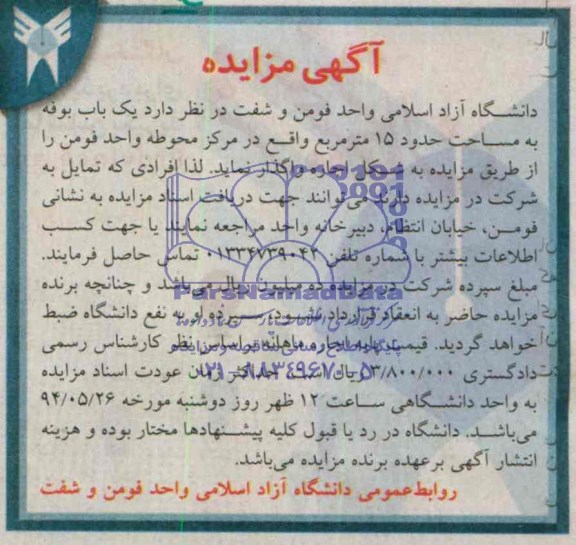 آگهی مزایده
دانشگاه آزاد اسلامی واحد فومن و شفت در نظر دارد یک باب بوفه
به مساحت حدود ۱۵ مترمربع واقع در مرکز محوطه واحد فومن را
از طریق مزایده به شکل اجاره واگذار نماید. لذا افرادی که تمایل به
شرکت در مزایده دارند می‌توانند جهت دریافت اسناد مزایده به نشانی
فومن، خیابان انتظام، دبیرخانه واحد مراجعه نمایند یا جهت کسب
اطلاعات بیشتر با شماره تلفن ۰۱۳۳۴۷۳۹۰۴۲ تماس حاصل فرمایند.
مبلغ سپرده شرکت در مزایده ده میلیون ریال می‌باشد و چنانچه برنده
مزایده حاضر به انعقاد قرارداد نشود، سپرده او به نفع دانشگاه ضبط
خواهد گردید. قیمت پایه اجاره ماهانه براساس نظر کارشناس رسمی
دادگستری ۳/۸۰۰/۰۰۰ ریال است. حداکثر زمان عودت اسناد مزایده
به واحد دانشگاهی ساعت ۱۲ ظهر روز دوشنبه مورخه ۹۴/۰۵/۲۶
می‌باشد. دانشگاه در رد یا قبول کلیه پیشنهادها مختار بوده و هزینه
انتشار آگهی برعهده برنده مزایده می‌باشد.
روابط‌عمومی دانشگاه آزاد اسلامی واحد فومن و شفت
ParsNamadData